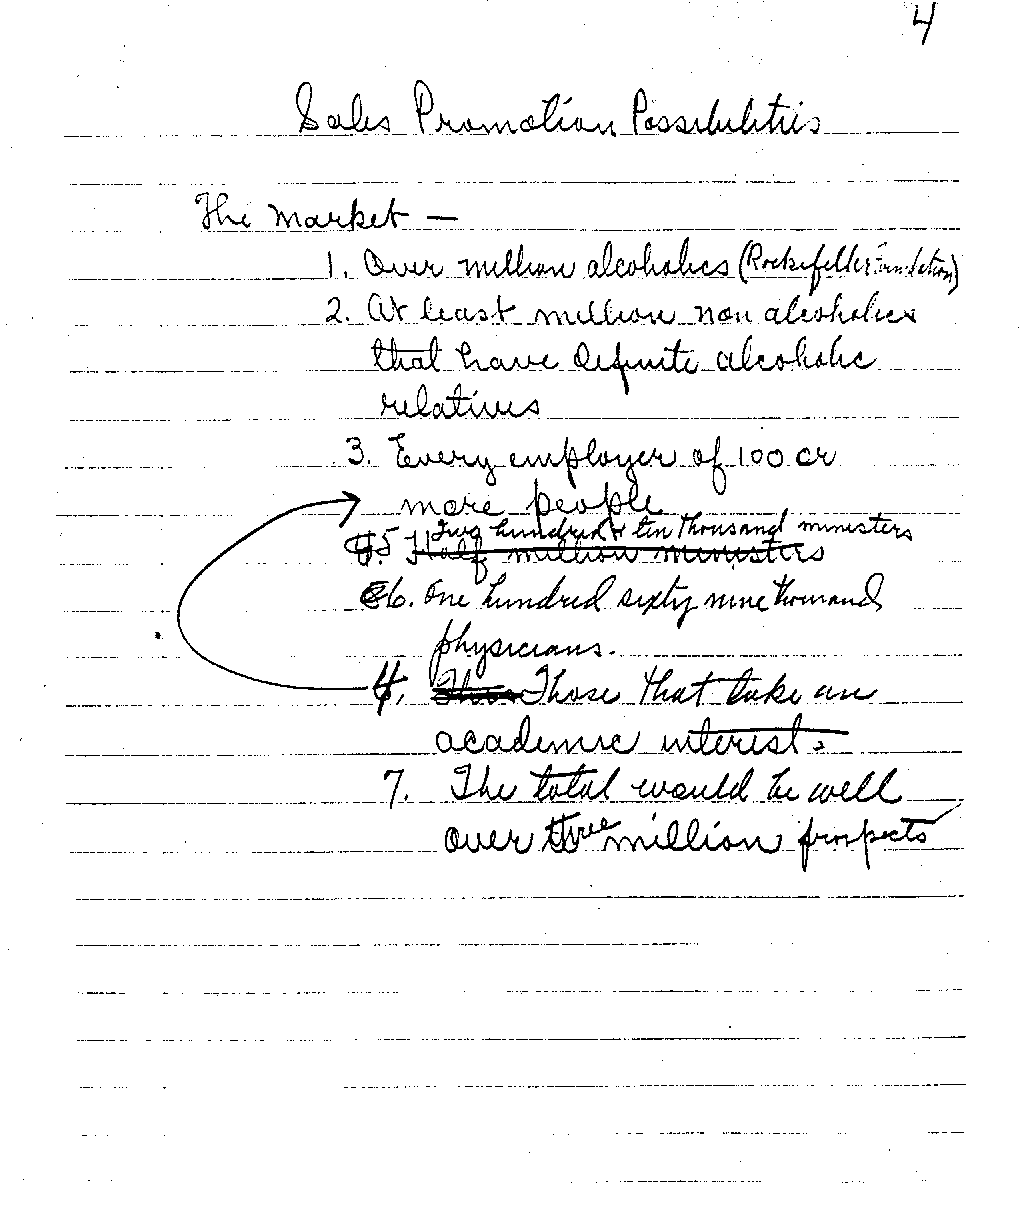 4
Sales Promotion Possibilities
The Market —
1. Over million alcoholics (Rockefeller Foundation)
2. At least million non alcoholics
that have definite alcoholic
relatives
3. Every employer of 100 or
more people
Two hundred & ten thousand ministers
5. Half million ministers
6. One hundred sixty nine thousand
physicians.
4. Those that take an
academic interest.
7. The total would be well
over three million prospects